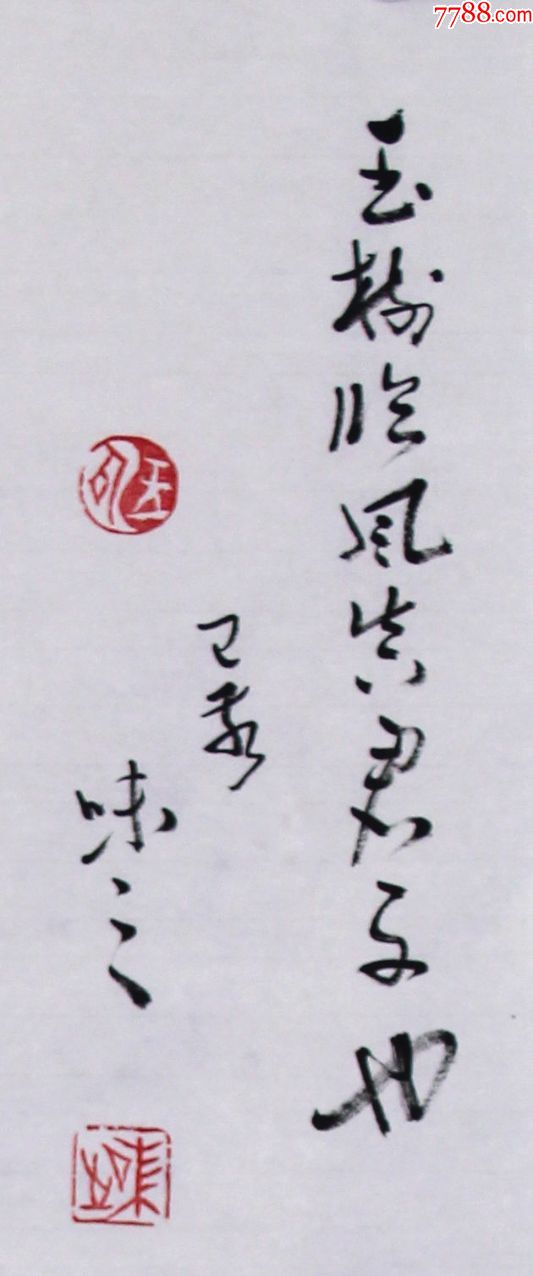 7788.com
玉树临風真君子也
己亥
味之